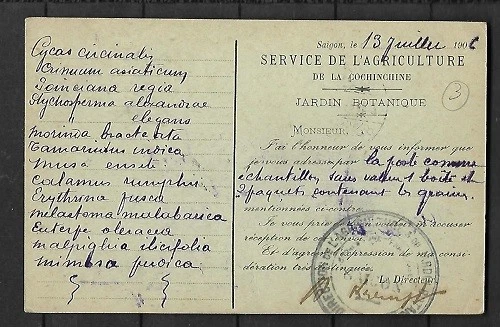 Cycas circinalis
Crinum asiaticum
Poinciana regia
Ptychosperma alexandrae
elegans
morinda bracteata
Tamarindus indica
Musa ensete
calamus rumphii
Erythrina fusca
melastoma malabarica
Euterpe oleracea
malpighia ilicifolia
mimosa pudica
Saïgon, le 13 Juillet 190
SERVICE DE L'AGRICULTURE
DE LA COCHINCHINE
JARDIN BOTANIQUE
3
MONSIEUR,
J'ai l'honneur de vous informer que
je vous adresse par la poste comme
échantillon, sans valeur 1 boîte et
2 paquets contenant les graines
mentionnées ci-contre.
Je vous prie de vouloir m'accuser
réception de cet envoi.
Et d'agréer l'expression de ma consi-
dération très distinguée.
Le Directeur,